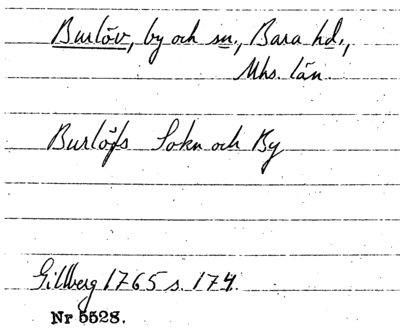 Burlöv, by och sn., Bara hd.,
Mhs. län.
Burlöfs Sokn och By
Gillberg 1765 s. 174.
Nr 5528.